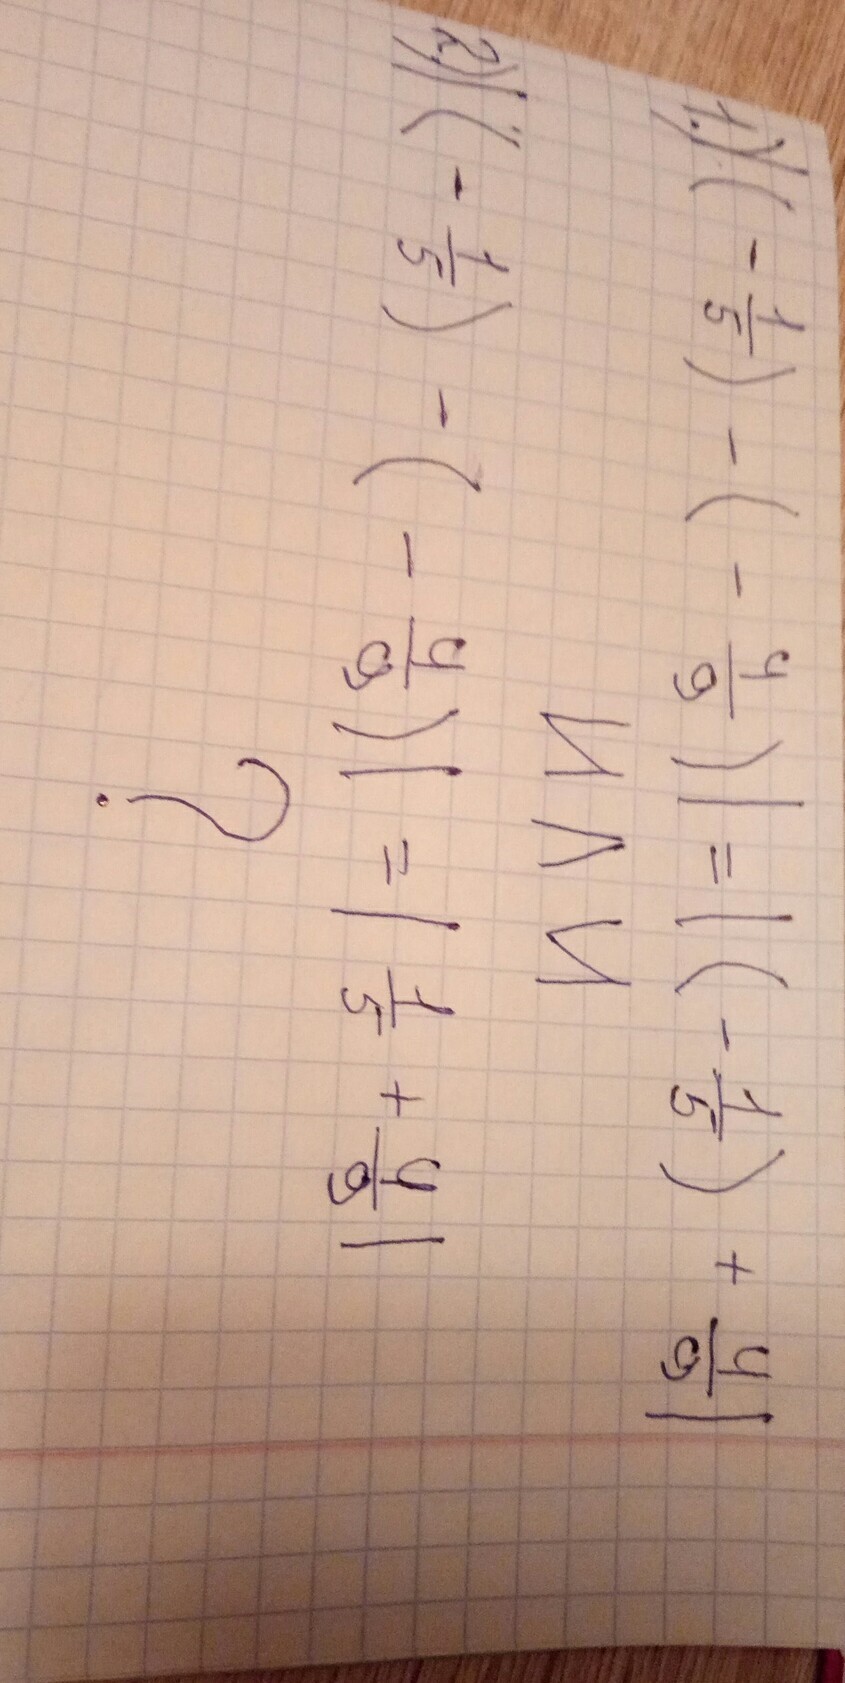 1.) |(-1/5) - (-4/9)| = |(-1/5) + 4/9|
ИЛИ
2.) |(-1/5) - (-4/9)| = |1/5 + 4/9|
?